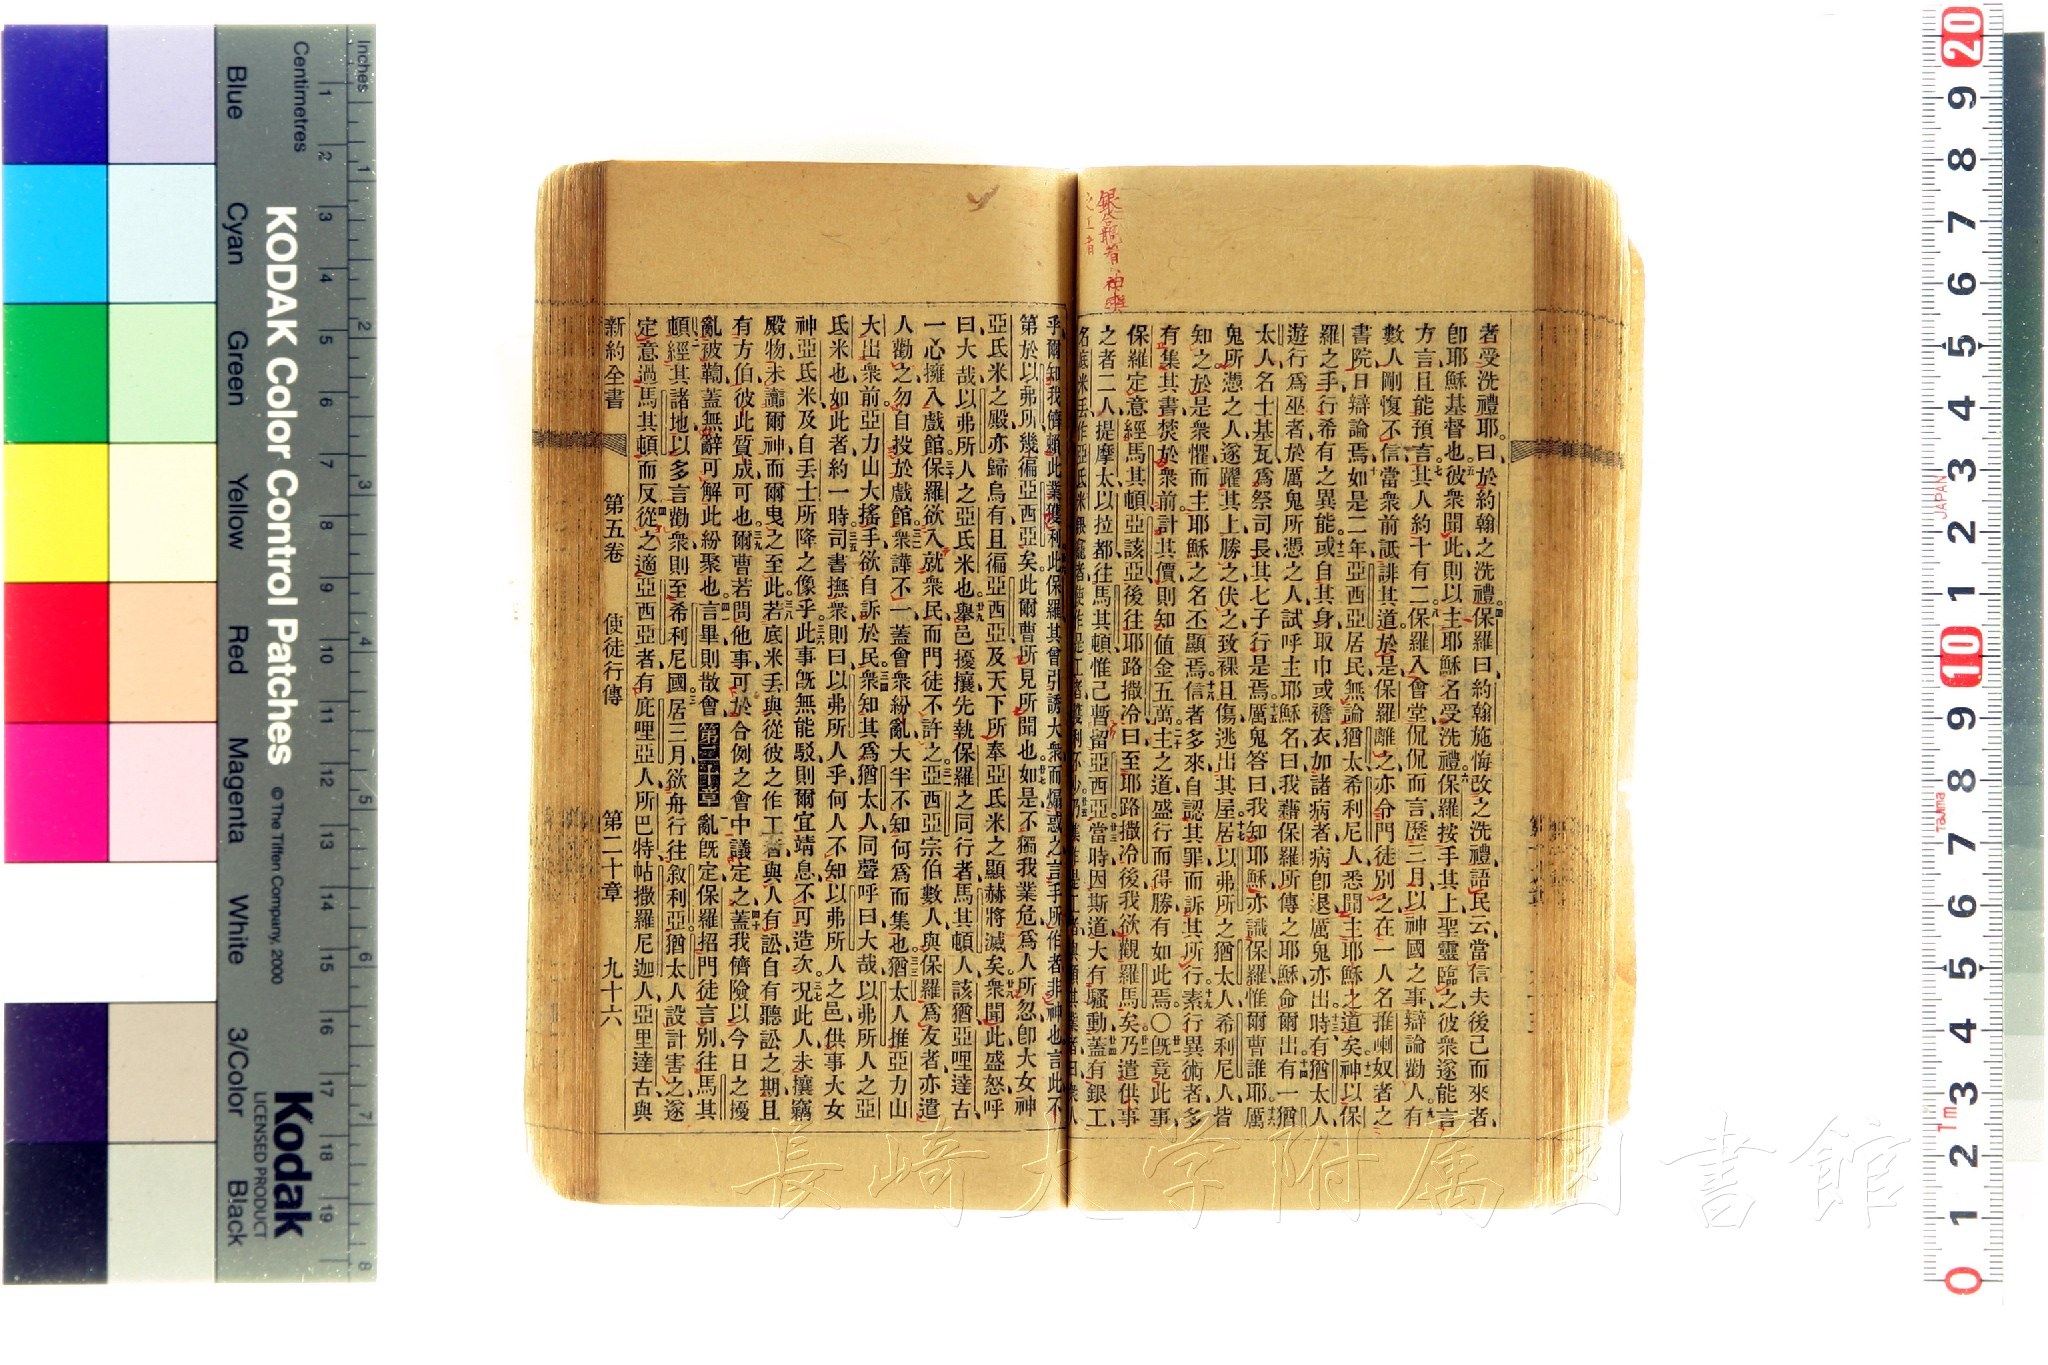 銀龕者神殿
者受洗禮耶曰於約翰之洗禮保羅曰約翰施悔改之洗禮語民云當信夫後己而來者
卽耶穌基督也彼衆聞此則以主耶穌名受洗禮保羅按手其上聖靈臨之彼衆遂能言
方言且能預言其人約十有二保羅入會堂侃侃而言歷三月以神國之事辯論勸人有
數人剛愎不信當衆前詆誹其道於是保羅離之亦令門徒別之在一人名推喇奴者之
書院日辯論焉如是二年亞西亞居民無論猶太希利尼人悉聞主耶穌之道矣神以保
羅之手行希有之異能或自其身取巾或襜衣加諸病者病卽退厲鬼亦出時有猶太人
遊行爲巫者於厲鬼所憑之人試呼主耶穌名曰我藉保羅所傳之耶穌命爾出有一猶
太人名士基瓦爲祭司長其七子行是焉厲鬼答曰我知耶穌亦識保羅惟爾曹誰耶厲
鬼所憑之人遂躍其上勝之伏之致裸且傷逃出其屋居以弗所之猶太人希利尼人皆
知之於是衆懼而主耶穌之名丕顯焉信者多來自認其罪而訴其所行素行異術者多
有集其書焚於衆前計其價則知値金五萬主之道盛行而得勝有如此焉〇旣竟此事
保羅定意經馬其頓亞該亞後往耶路撒冷曰至耶路撒冷後我欲觀羅馬矣乃遣供事
之者二人提摩太以拉都往馬其頓惟己暫留亞西亞當時因斯道大有騷動蓋有銀工
名底米丟作亞氐米銀龕
乎爾知我儕賴此業獲利此保羅其曾引誘大衆而煽惑之言手所作者非神也言此不
第於以弗所幾徧亞西亞矣此爾曹所見所聞也如是不獨我業危爲人所忽卽大女神
亞氐米之殿亦歸烏有且徧亞西亞及天下所奉亞氐米之顯赫將滅矣衆聞此盛怒呼
曰大哉以弗所人之亞氐米也舉邑擾攘先執保羅之同行者馬其頓人該猶亞哩達古
一心擁入戲館保羅欲入就衆民而門徒不許之亞西亞宗伯數人與保羅爲友者亦遣
人勸之勿自投於戲館衆譁不一蓋會衆紛亂大半不知何爲而集也猶太人推亞力山
大出衆前亞力山大搖手欲自訴於民衆知其爲猶太人同聲呼曰大哉以弗所人之亞
氐米也如此者約一時司書撫衆則曰以弗所人乎何人不知以弗所人之邑供事大女
神亞氐米及自丟士所降之像乎此事旣無能駁則爾宜靖息不可造次況此人未攘竊
殿物未讟爾神而爾曳之至此若底米丟與從彼之作工者與人有訟自有聽訟之期且
有方伯彼此質成可也爾曹若問他事可於合例之會中議定之蓋我儕險以今日之擾
亂被鞫蓋無辭可解此紛聚也言畢則散會 第二十章 亂旣定保羅招門徒言別往馬其
頓經其諸地以多言勸衆則至希利尼國居三月欲舟行往敘利亞猶太人設計害之遂
定意過馬其頓而反從之適亞西亞者有庇哩亞人所巴特帖撒羅尼迦人亞里達古與
新約全書 第五卷 使徒行傳 第二十章 九十六
長崎大学附属図書館
Inches
Centimetres
KODAK Color Control Patches
© The Tiffen Company, 2000
Kodak
LICENSED PRODUCT
Blue Cyan Green Yellow Red Magenta White 3/Color Black
1 2 3 4 5 6 7 8 9 10 11 12 13 14 15 16 17 18 19
1 2 3 4 5 6 7 8
20 9 8 7 6 5 4 3 2 1 10 9 8 7 6 5 4 3 2 1 0
JAPAN
Tajima